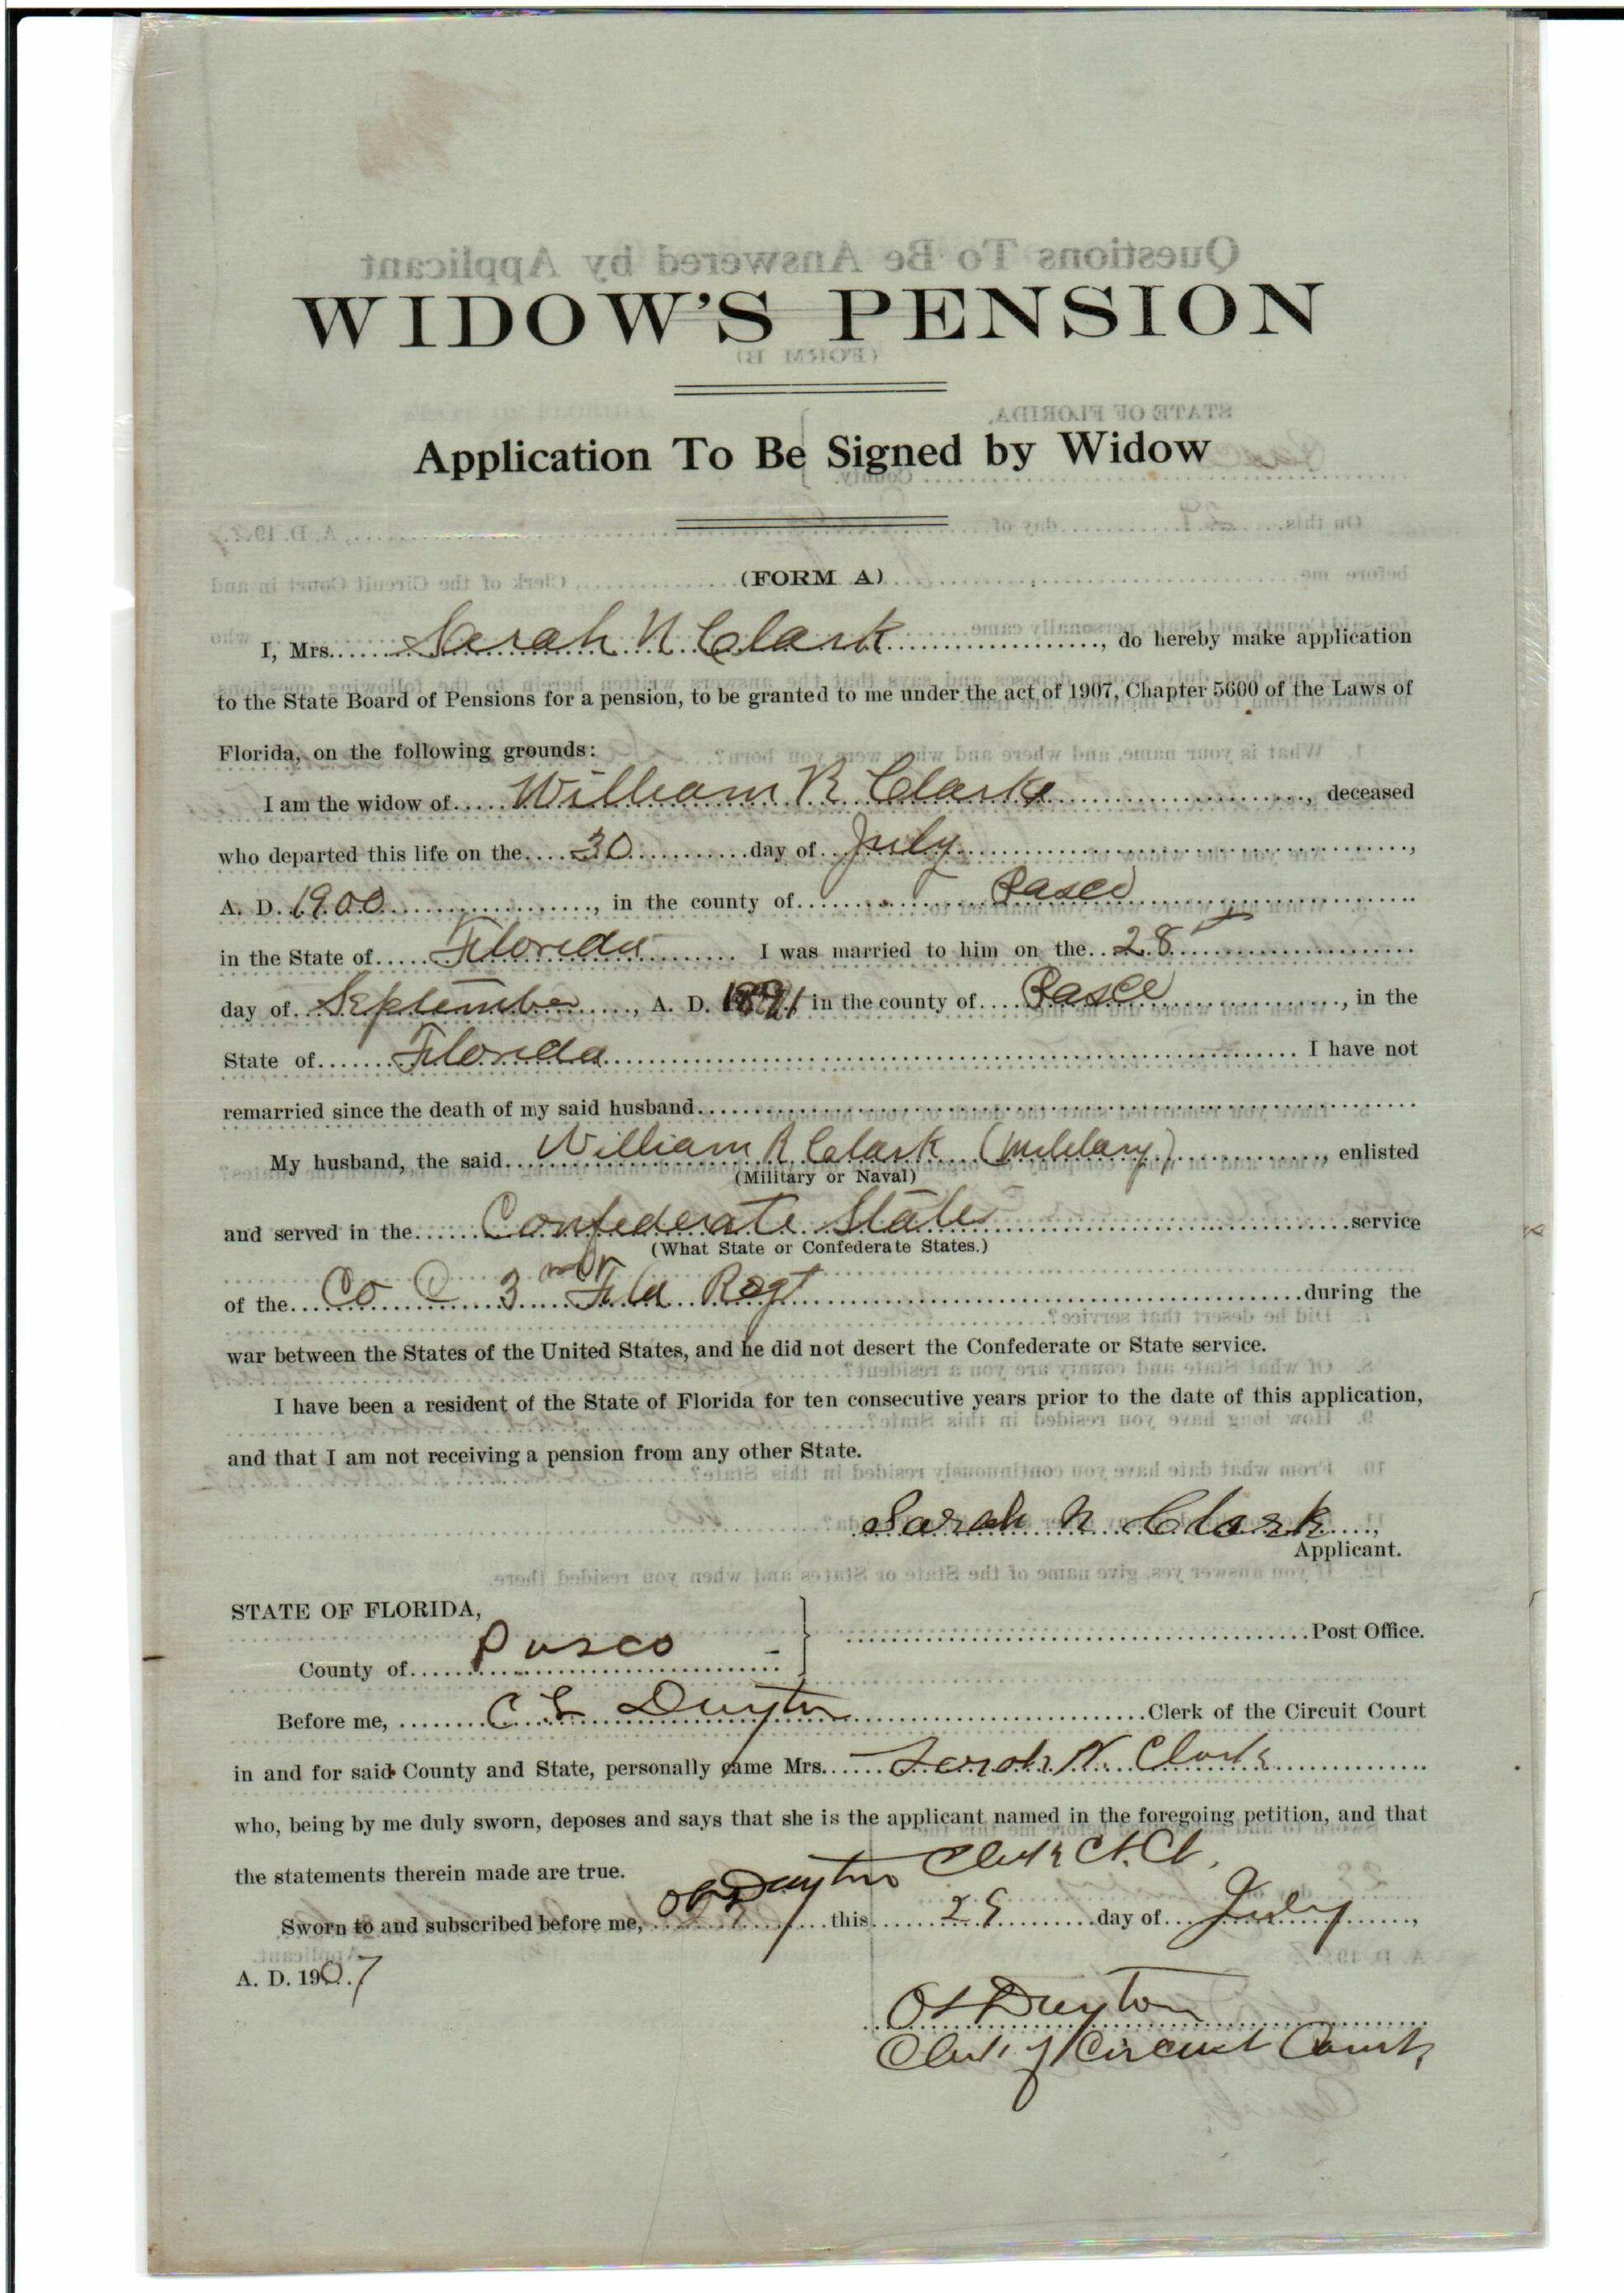 WIDOW'S PENSION
Application To Be Signed by Widow
(FORM A)
I, Mrs. Sarah N Clark, do hereby make application
to the State Board of Pensions for a pension, to be granted to me under the act of 1907, Chapter 5600 of the Laws of
Florida, on the following grounds:
I am the widow of William R Clarke, deceased
who departed this life on the 30 day of July,
A. D. 1900, in the county of Pasco
in the State of Florida I was married to him on the 28
day of September, A. D. 1891 in the county of Pasco, in the
State of Florida I have not
remarried since the death of my said husband
My husband, the said William R Clark (Military), enlisted
(Military or Naval)
and served in the Confederate State service
(What State or Confederate States.)
of the Co 3 Fla Regt during the
war between the States of the United States, and he did not desert the Confederate or State service.
I have been a resident of the State of Florida for ten consecutive years prior to the date of this application,
and that I am not receiving a pension from any other State.
Sarah N Clark,
Applicant.
STATE OF FLORIDA,
Post Office.
County of Pasco
Before me, Dayton Clerk of the Circuit Court
in and for said County and State, personally came Mrs. Sarah N. Clark
who, being by me duly sworn, deposes and says that she is the applicant named in the foregoing petition, and that
the statements therein made are true.
Dayton Clerk Ct. Ct.
Sworn to and subscribed before me, this 29 day of July,
A. D. 1907
Dayton
Clerk of Circuit Court